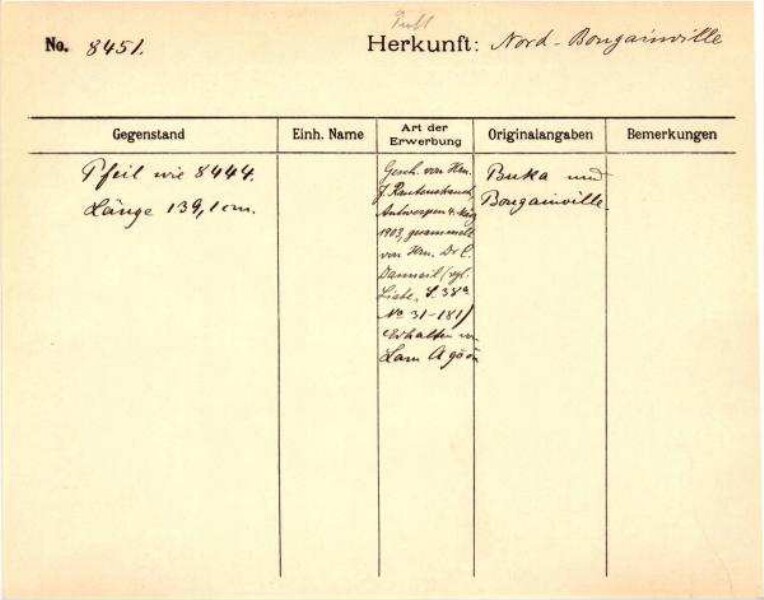 No. 8451.
Herkunft: Nord-Bougainville
Gegenstand
Einh. Name
Art der
Erwerbung
Originalangaben
Bemerkungen
Pfeil wie 8444.
Länge 139,1 cm.
Gesch. von Hrn.
J. Rautenstrauch,
Antwerpen 4. März
1903, gesammelt
von Hrn. Dr C.
Danneil (vgl.
Liste, S. 38a
No 31-181)
Erhalten
Lam
Buka und
Bougainville.